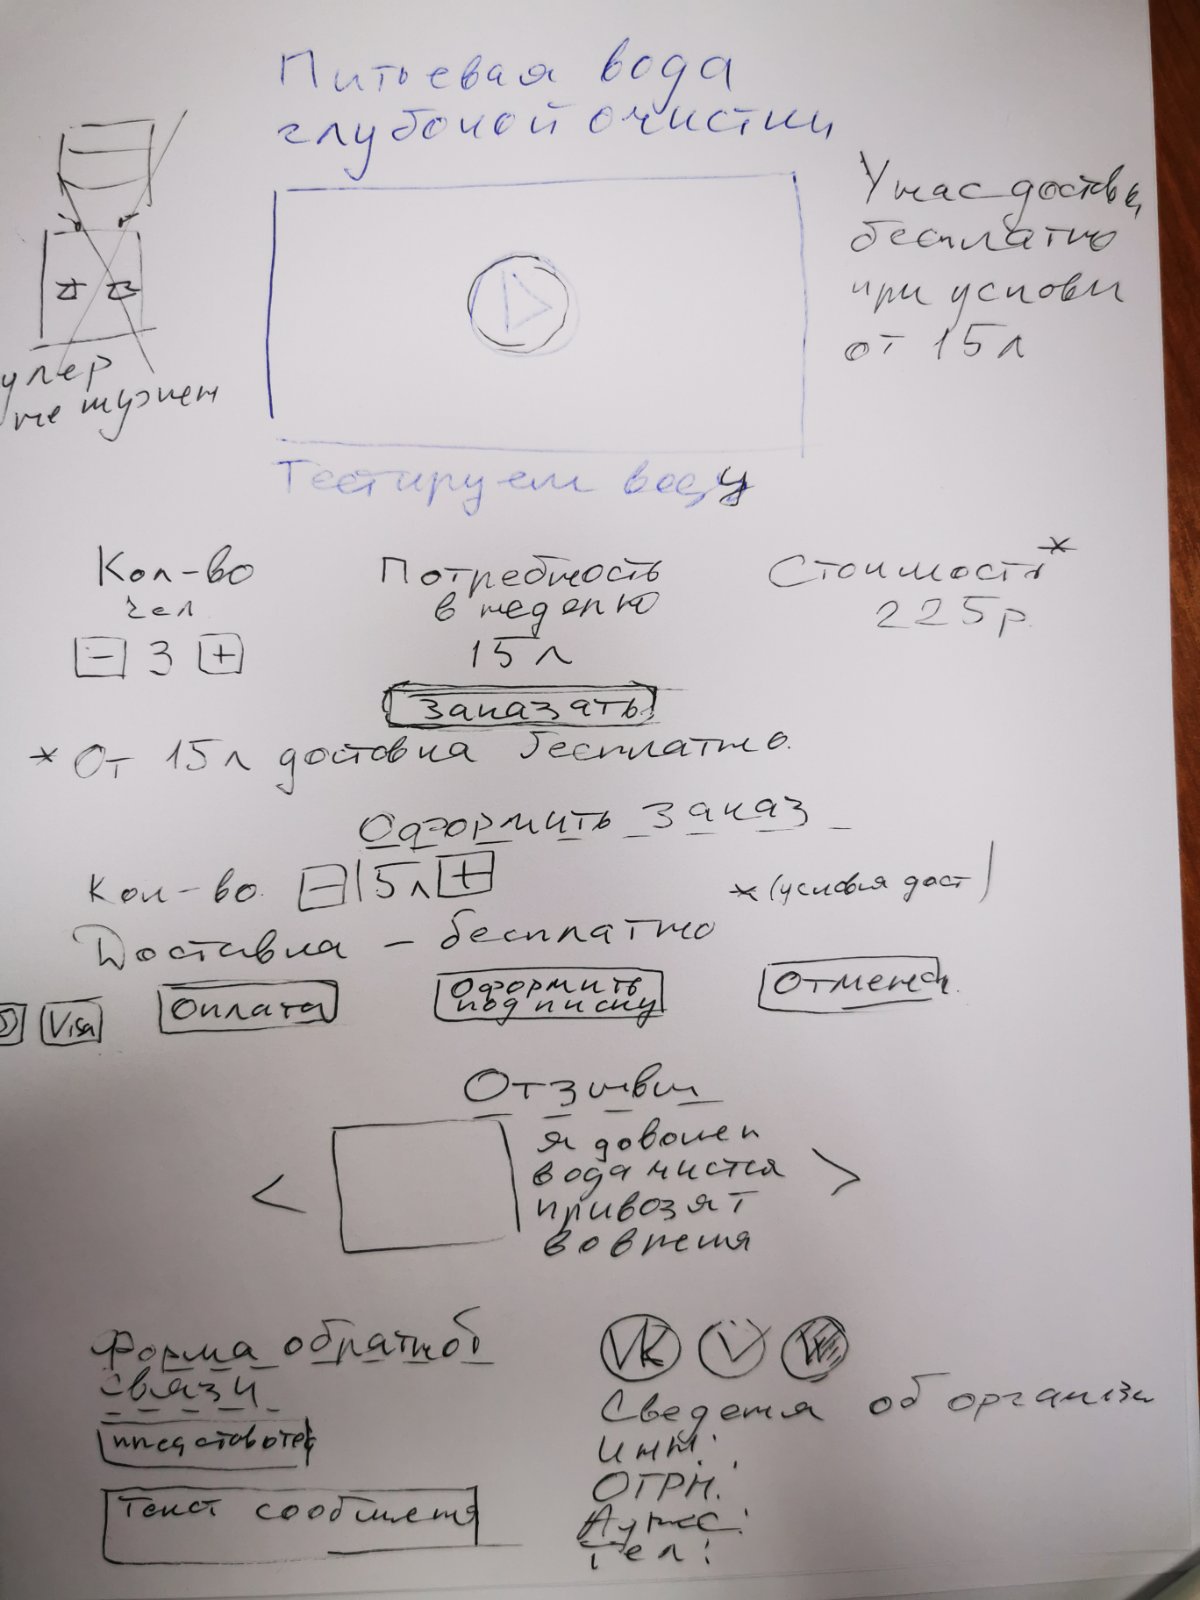 Питьевая вода
глубокой очистки
У нас доставка
бесплатно
при услови
от 15л
улер
не нужен
Тестируем воду
Кол-во
чел
- 3 +
Потребность
в неделю
15 л
Стоимость*
225р.
Заказать
* От 15л доставка бесплатно.
Оформить заказ
Кол-во - 15л +
* (условия дост)
Доставка - бесплатно
Visa
Оплата
Оформить
подписку
Отмена
Отзывы
<
я доволен
вода чистая
привозят
вовремя
>
Форма обратной
связи
Текст сообщения
VK
Сведения об организ
ИНН:
ОГРН:
Адрес:
Тел: